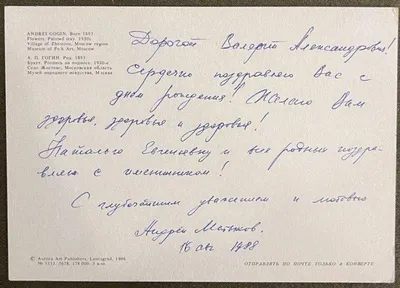 ANDREI GOGIN. Born 1893
Flowers. Painted tray. 1930s
Village of Zhostovo, Moscow region
Museum of Folk Art, Moscow
А. П. ГОГИН. Род. 1893
Букет. Роспись на подносе. 1930-е
Село Жостово, Московская область
Музей народного искусства, Москва
Дорогой Валерий Александрович!
Сердечно поздравляю Вас с
днем рождения! Желаю Вам
здоровья, здоровья и здоровья!
Наталью Евгеньевну и всех родных поздра-
вляю с именинником!
С глубочайшим уважением и любовью
Андрей
16 авг 1988
© Aurora Art Publishers, Leningrad, 1986
ОТПРАВЛЯТЬ ПО ПОЧТЕ ТОЛЬКО В КОНВЕРТЕ